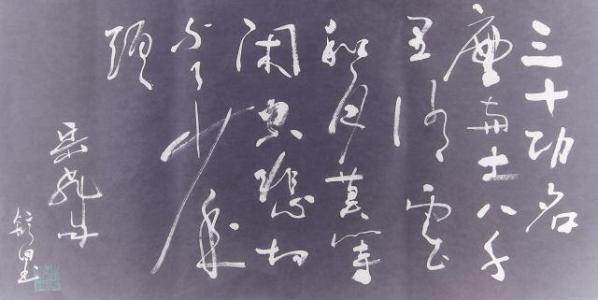 三十功名
塵與土八千
里路雲
和月莫等
闲空悲切
白了少年
頭
岳飛句